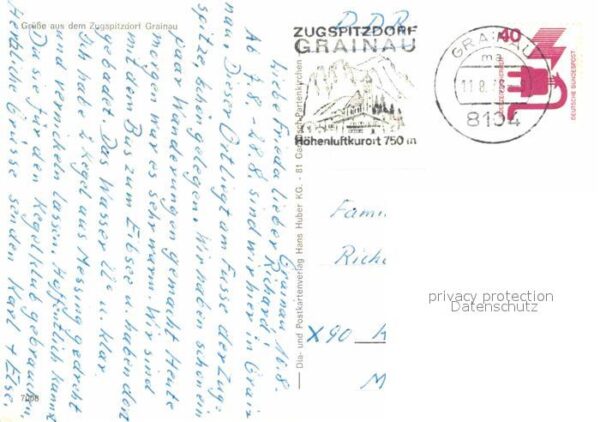 Grüße aus dem Zugspitzdorf Grainau
Grainau 10.8.
Liebe Frieda, lieber Richard!
Ab 7.8 - 28.8. sind wir hier in Grai=
nau. Dieser Ort liegt am Fusse der Zug=
spitze, schön gelegen. Wir haben schon ein
paar Wanderungen gemacht. Heute
morgen war es sehr warm. Wir sind
mit dem Bus zum Eibsee u. haben dort
gebadet. Das Wasser 22° u. klar.
Ich habe 2 Kegel aus Messing gedreht
und vernickeln lassen. Hoffentlich kannst
Du sie für den Kegelklub gebrauchen.
Herzliche Grüsse senden Karl + Else.
7068
Dia- und Postkartenverlag Hans Huber KG. - 81 Garmisch-Partenkirchen
DDR
ZUGSPITZDORF
GRAINAU
Höhenluftkurort 750 m
GRAINAU
ma
11.8.
8104
40
DEUTSCHE BUNDESPOST
Fami
Riche
X90
M
privacy protection
Datenschutz